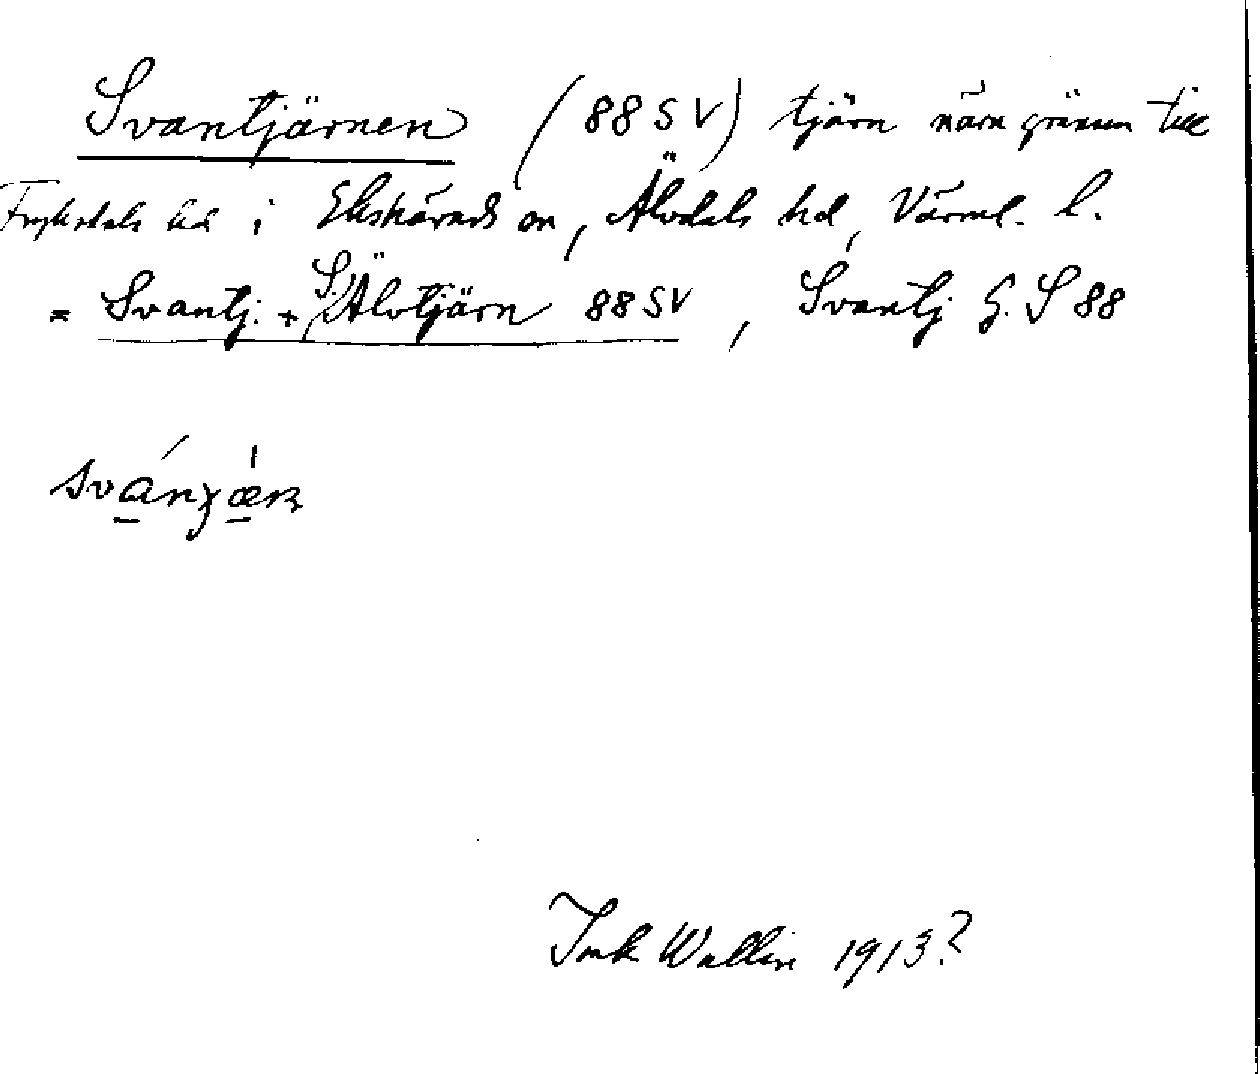 Svantjärnen (88 SV) tjärn nära gränsen till
Fryksdals hd i Ekshärads sn, Älvdals hd, Värml. l.
= Svantj. + S. Älvtjärn 88 SV, Svantj G. S 88
Wallin 1913?